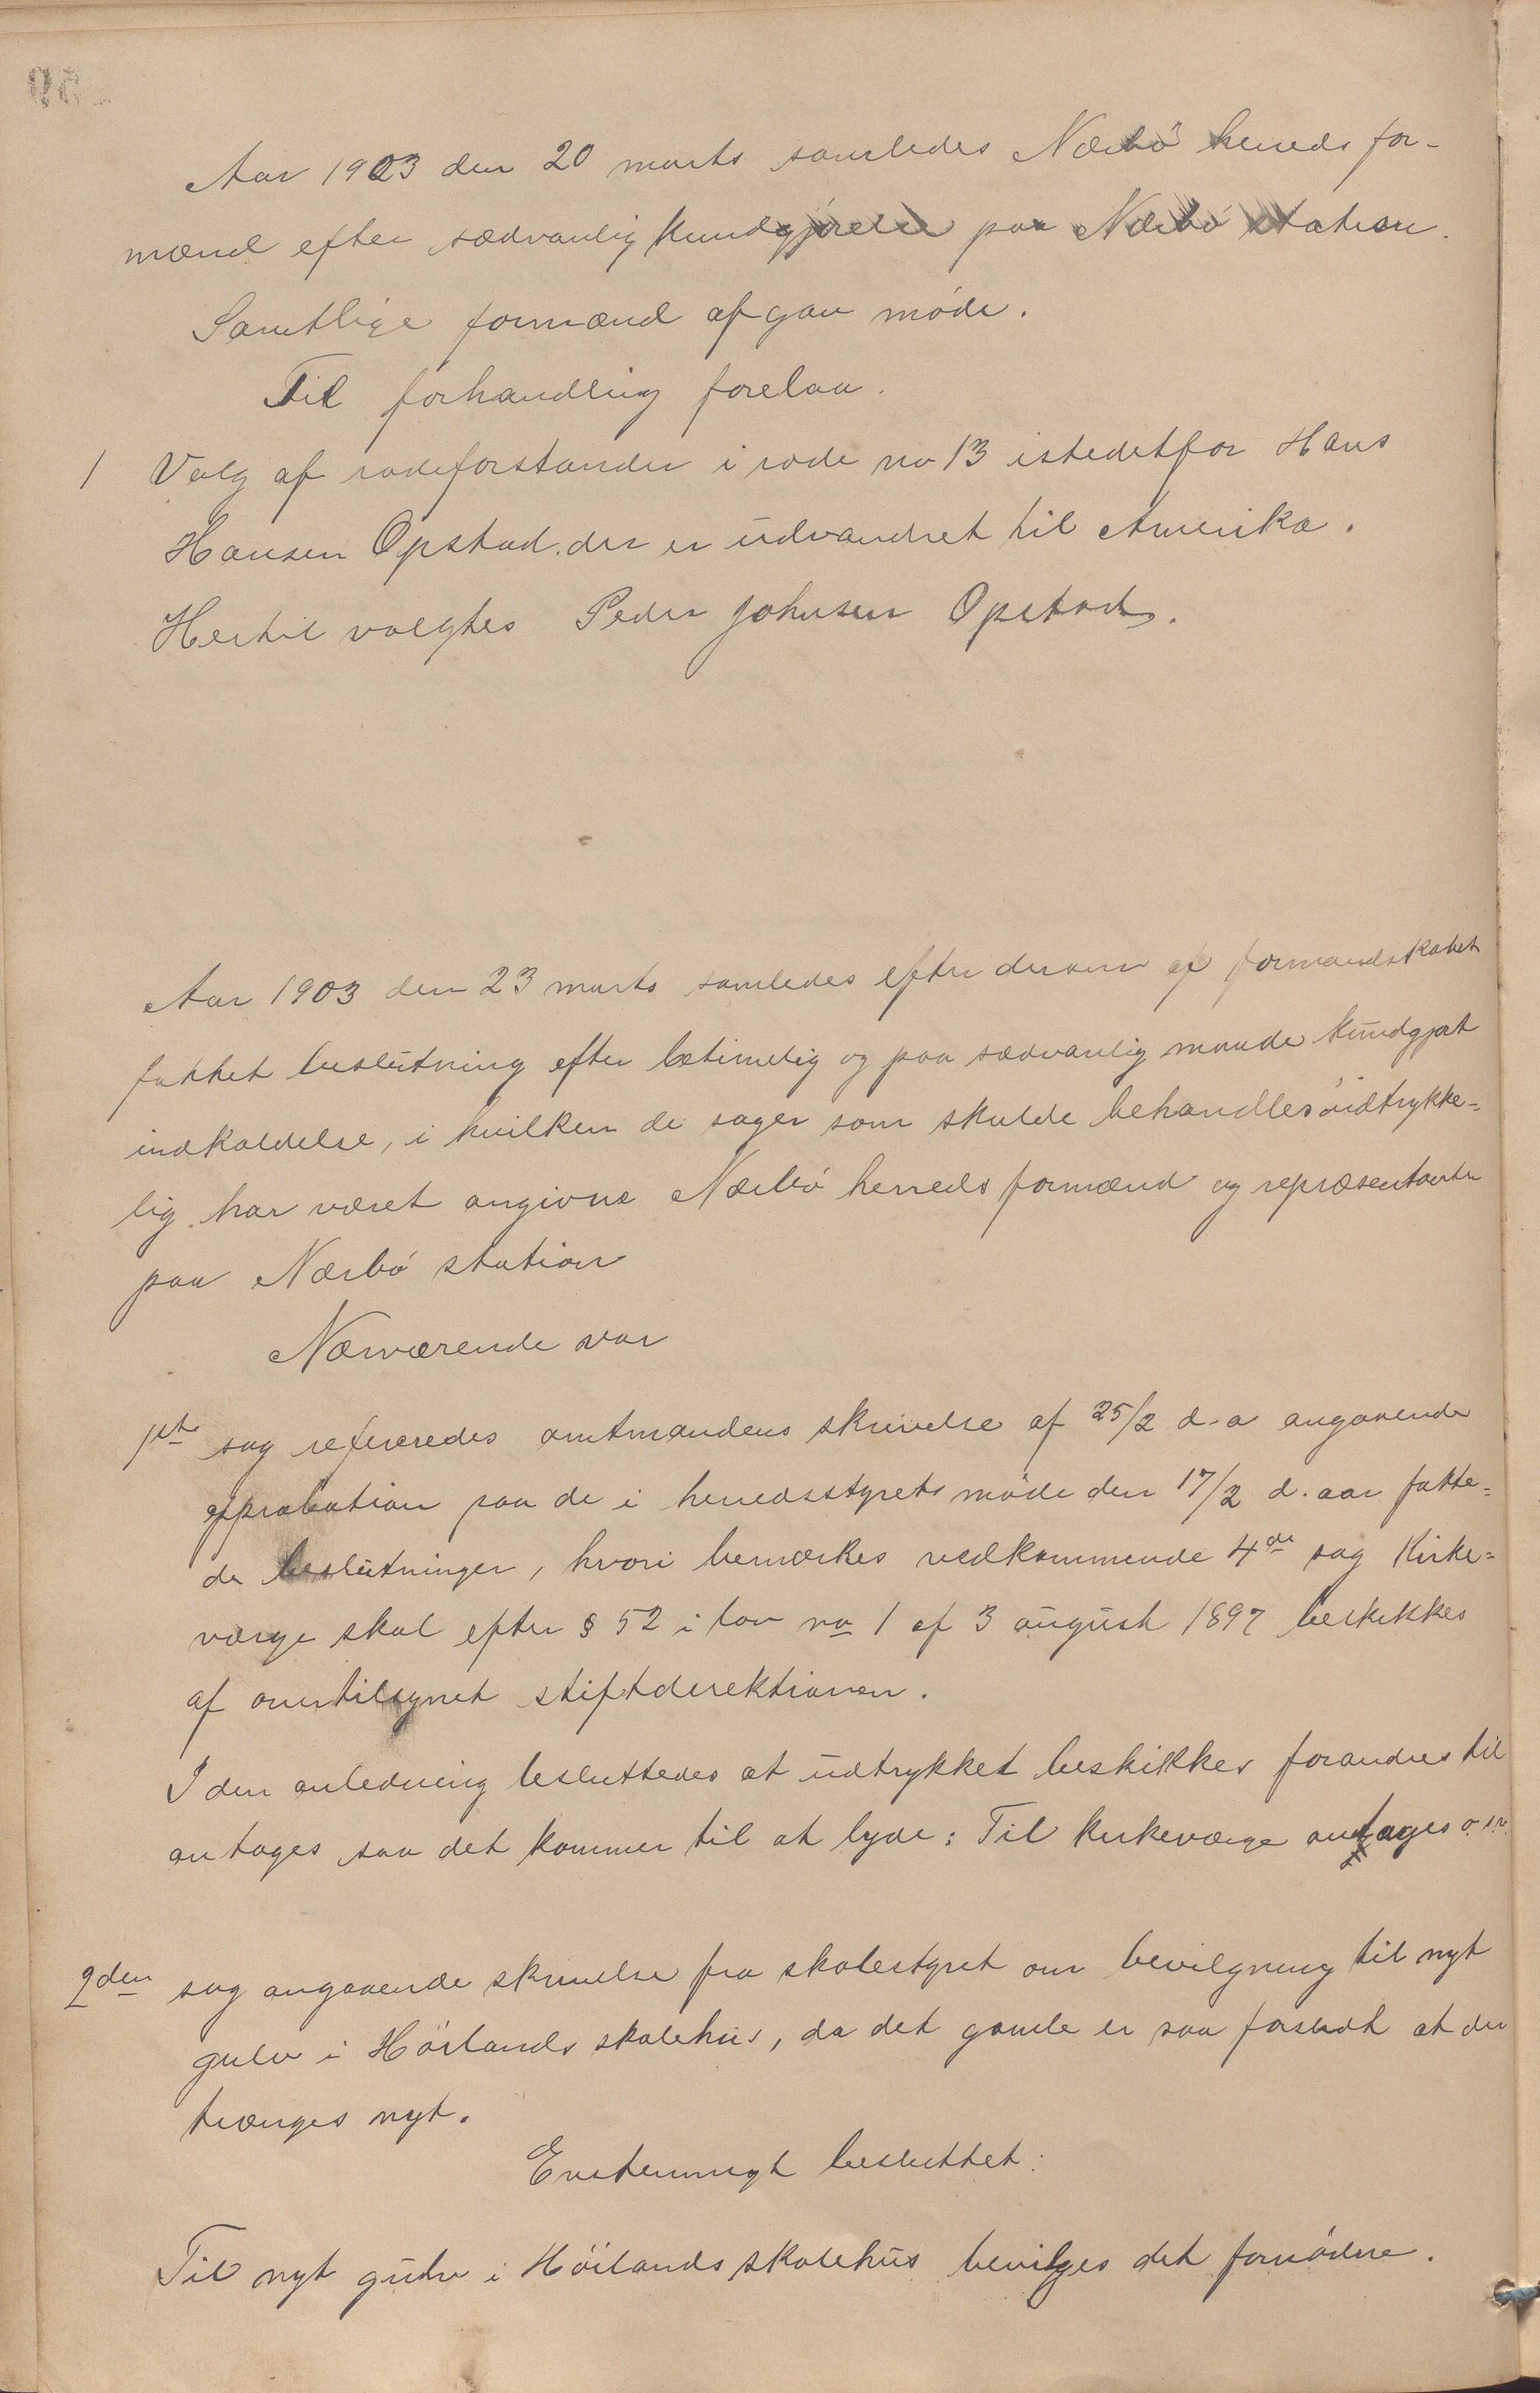 Aar 1903 den 20 marts samledes Nærbö herreds for-
mænd efter sædvanlig kundgjørelse paa Nærbö station.
Samtlige formænd afgav möde.
Til forhandling forelaa.
1 Valg af rodeforstander i rode no 13 istedetfor Hans
Hansen Opstad. der er udvandret til Amerika.
Hertil valgtes Peder Johnsen Opstad.
Aar 1903 den 23 marts samledes efter derom af formandskabet
fattet beslutning efter betimelig og paa sædvanlig maade kundgjort
indkaldelse, i hvilken de sager som skulde behandles udtrykke-
lig har været angivne Nærbö herreds formænd og repræsentanter
paa Nærbö station
Nærværende var
1ste sag refereredes amtmandens skrivelse af 25/2 d.a angaaende
approbation paa de i herredsstyrets möde den 17/2 d. aar fatte-
de beslutninger, hvori bemærkes vedkommende 4de sag Kirke-
værge skal efter § 52 i lov no 1 af 3 august 1897 beskikkes
af overtilsynet stiftdirektionen.
I den anledning besluttedes at udtrykket beskikkes forandres til
antages saa det kommer til at lyde: Til kirkeværge antages o.s.v.
2den sag angaaende skrivelse fra skolestyret om bevilgning til nyt
gulv i Höilands skolehus, da det gamle er saa forslidt at der
trænges nyt.
Enstemmigt besluttet:
Til nyt gulv i Höilands skolehus bevilges det fornödne.